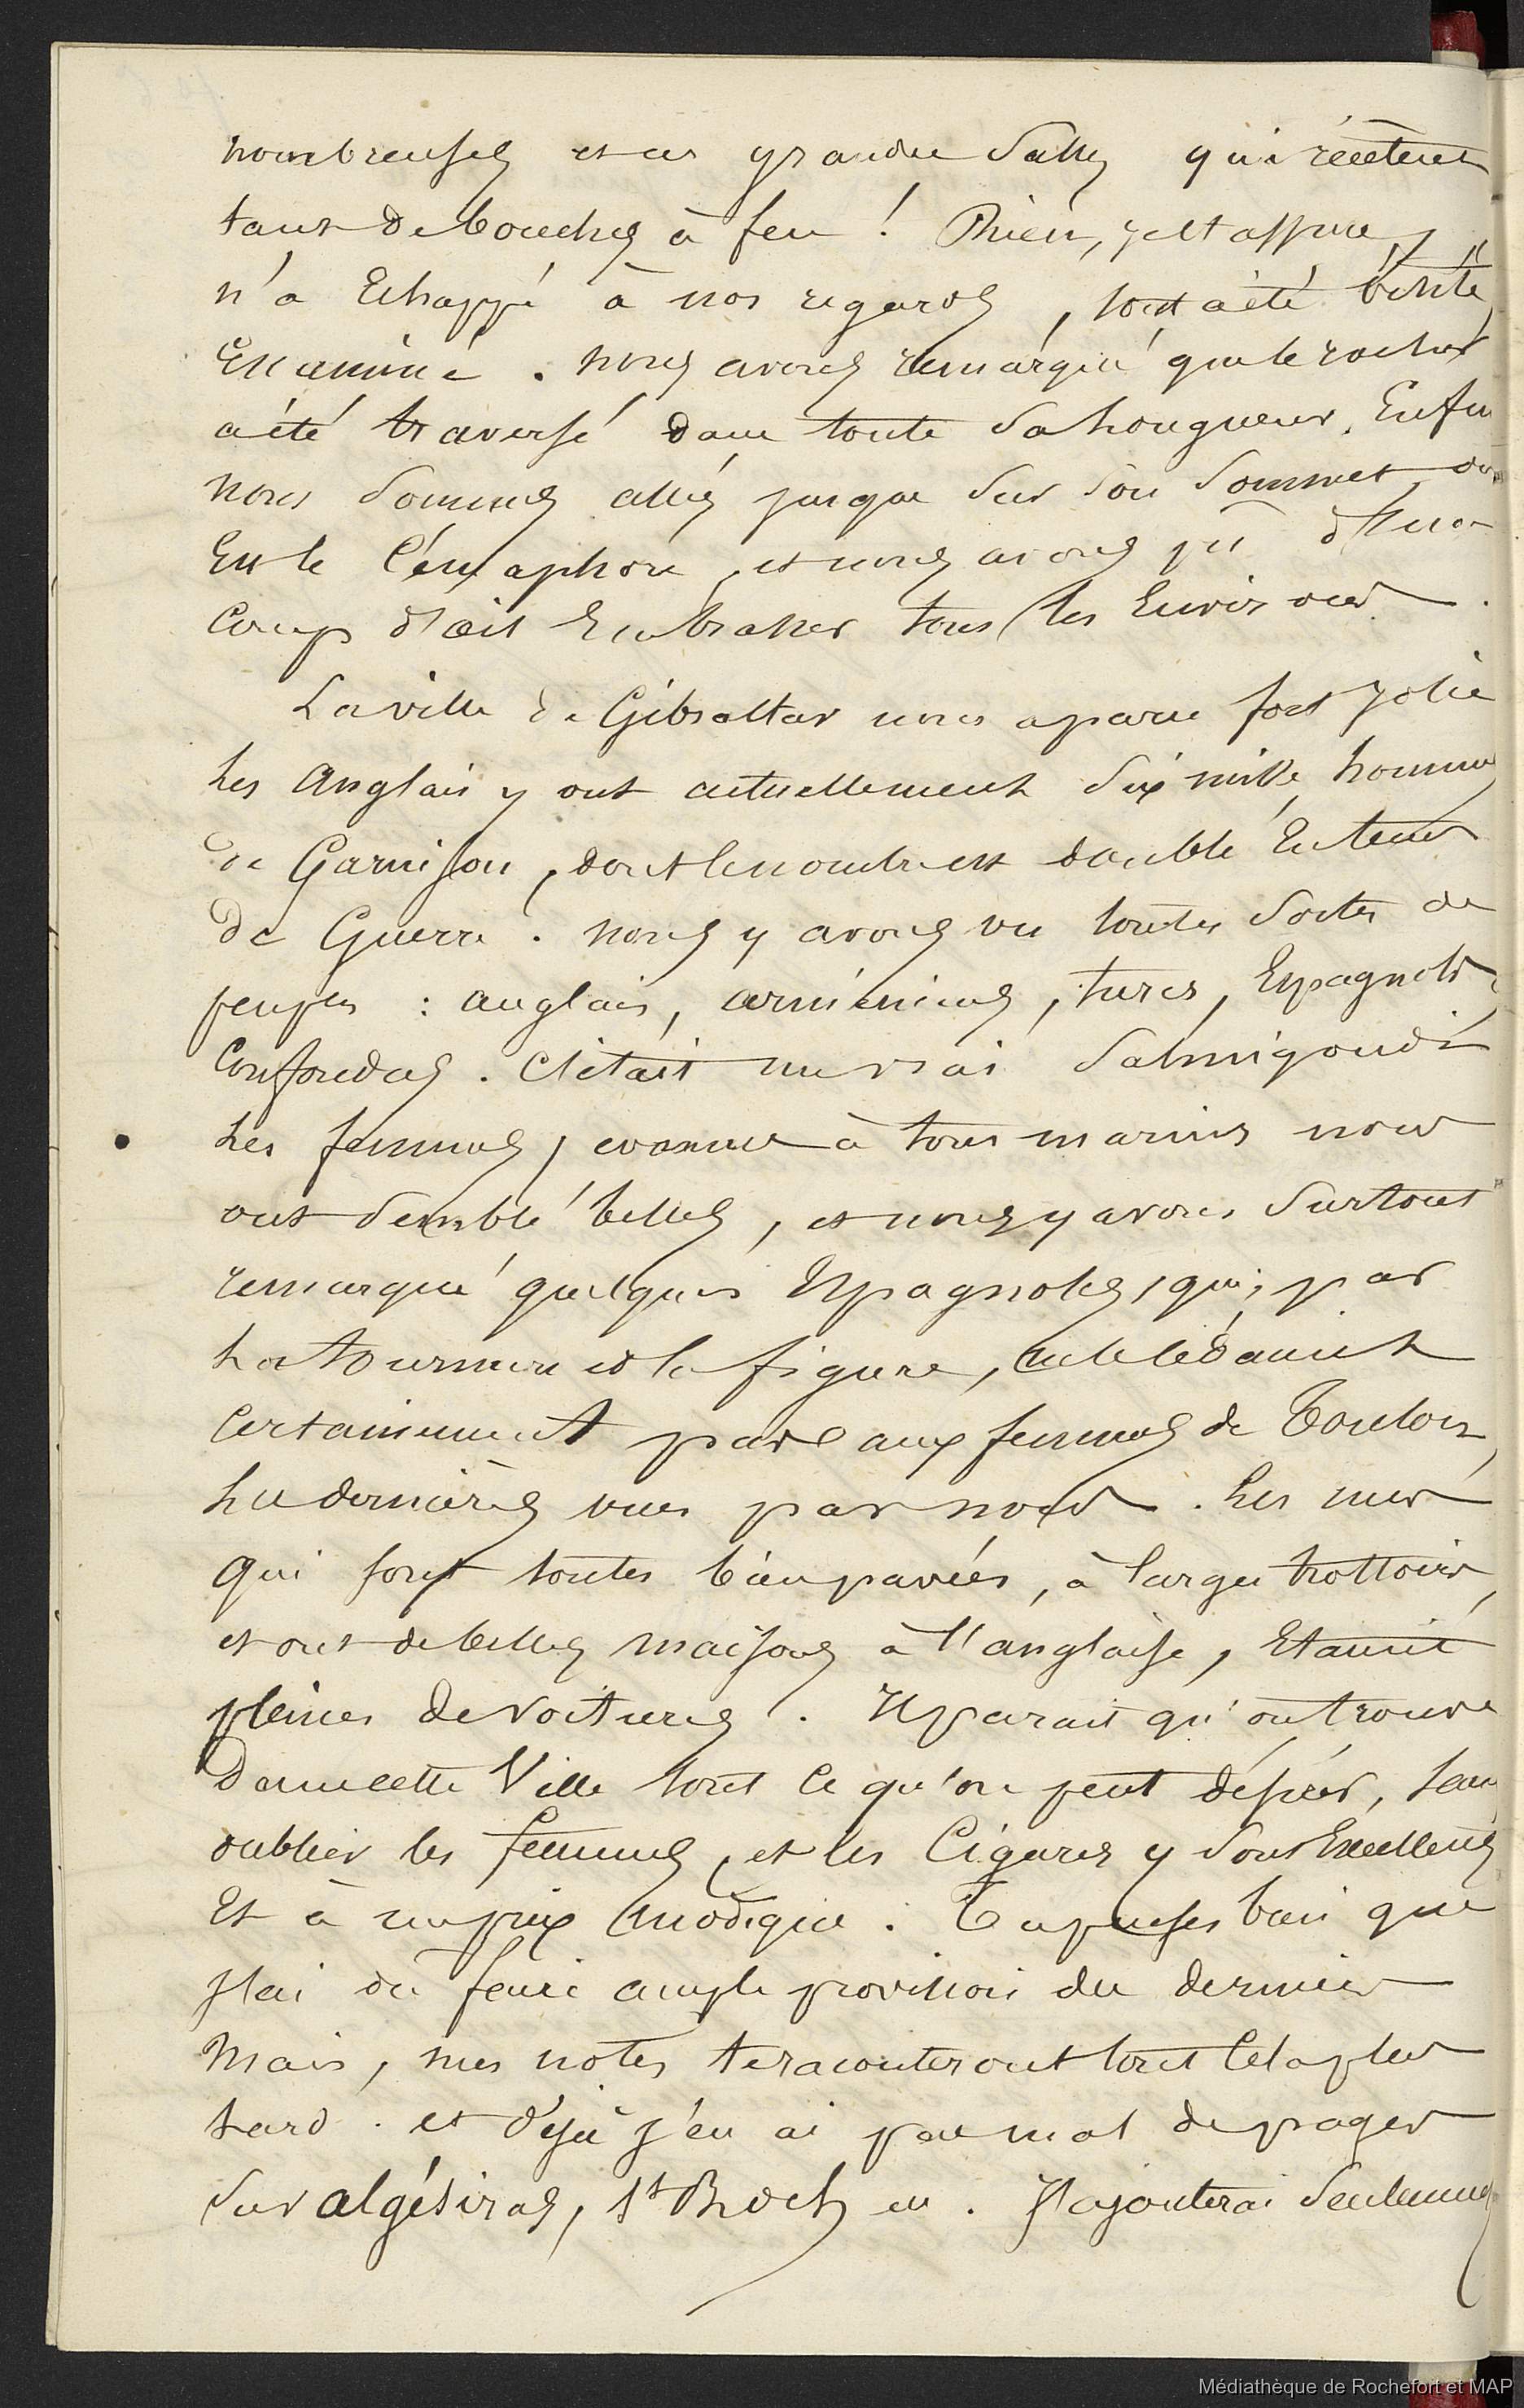 nombreuses et ces grandes Salles qui recèlent
tant de bouches à feu ! Rien, je t'assure,
n'a Echappé à nos regards, tout a été visité,
Examiné . nous avons remarqué que le rocher
a été traversé dans toute sa longueur. Enfin
nous sommes allés jusque sur son sommet, où
Est le Cémaphore, et nous avons pû d'un
Coup d'œil Embrasser tous les Environs .
La ville de Gibraltar nous a paru fort jolie
les Anglais y ont actuellement six mille hommes
de Garnison, dont le nombre est doublé En tems
de Guerre . nous y avons vu toutes sortes de
peuples : anglais, arméniens, turcs, Espagnols,
Confondus . C'était un vrai Salmigondis
Les femmes, comme à tous marins nous
ont semblé belles, et nous y avons surtout
remarqué quelques Espagnoles, qui, par
la tournure et la figure, ne le cédaient
Certainement pas aux femmes de Toulon,
les dernières vues par nous . Les rues
qui sont toutes bien pavées, à larges trottoirs,
et ont de belles maisons à l'anglaise, Etaient
pleines de voitures . Il parait qu'on trouve
Dans cette Ville tout ce qu'on peut désirer, sans
oublier les femmes, et les Cigares y sont Excellents
Et à un prix modique . Tu penses bien que
j'ai dû faire ample provision du dernier
Mais, mes notes te raconteront tout cela plus
tard . et déjà j'en ai pas mal de pages
sur algésiras, St Roch, &a . J'ajouterai seulement
Médiathèque de Rochefort et MAP